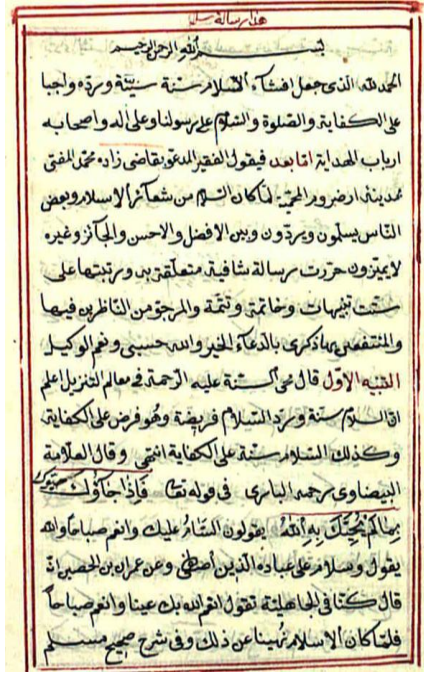 هذا رسالة سلام
بسم الله الرحمن الرحيم
الحمد لله الذى جعل افشاء السلام سنة سنيّة وردّه واجبا
على الكفاية والصلوة والسّلام على رسولنا وعلى آله واصحابه
ارباب الهداية امّا بعد فيقول الفقير المدعوّ بقاضى زاده محمّد المفتى
بمدينة ارضروم المحميّة لمّا كان السّلام من شعآئر الاسلام وبعض
النّاس يسلّمون ويردّون وبين الافضل والاحسن والجآئز وغيره
لا يميّزون حرّرت رسالة شافية متعلّقة به ورتّبتها على
ستّ تنبيهات وخاتمة وتتمّة والمرجوّ من النّاظرين فيها
والمنتفعين بها ذكرى بالدعآء الخير والله حسبى ونعم الوكيل
التنبيه الاوّل قال محى السّنة عليه الرّحمة فى معالم التنزيل اعلم
انّ السّلام سنة وردّ السّلام فريضة وهو فرض على الكفاية
وكذلك السّلام سنّة على الكفاية انتهى وقال العلّامة
البيضاوى رحمه البارى فى قوله تعا فَاِذَا جَآؤُكَ حيّوك
بِمَا لَمْ يُحَيِّكَ بِهِ اللهُ يقولون السّام عليك وانعم صباحا والله
يقول وسلام على عباده الّذين اصطفى وعن عمران بن الحصين انّه
قال كنّا فى الجاهليّة تقول انعم الله بك عينا وانعم صباحاً
فلمّا كان الاسلام نُهينا عن ذلك وفى شرح صحيح مسلم